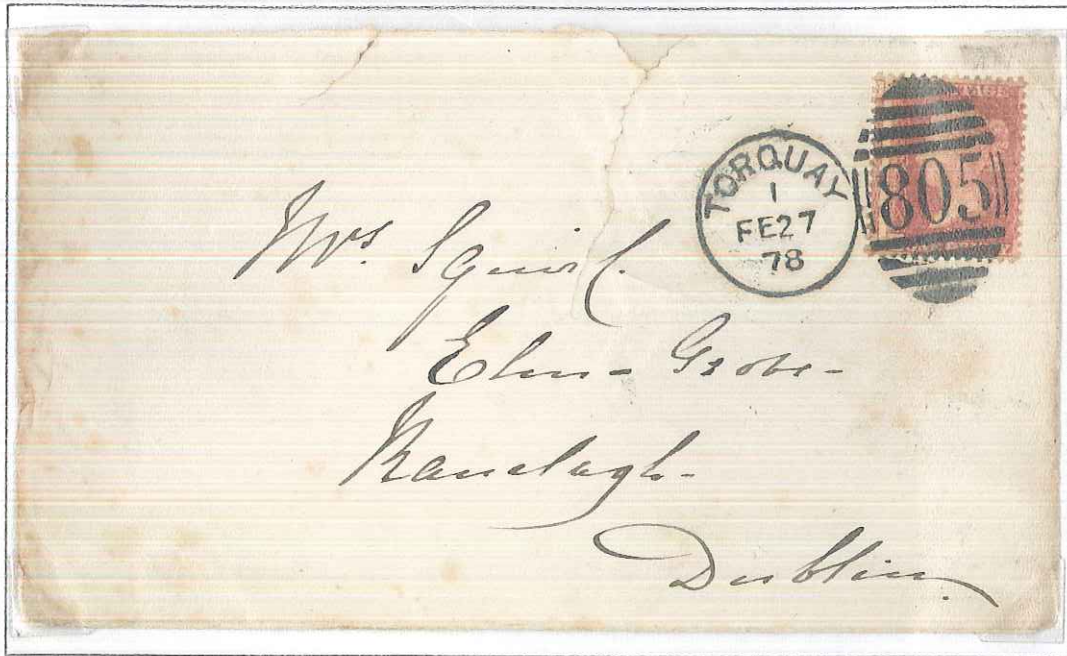 TORQUAY
1
FE27
78
805
TAGE
Mrs. Squirl.
Elm - Grove -
Ranelagh -
Dublin.